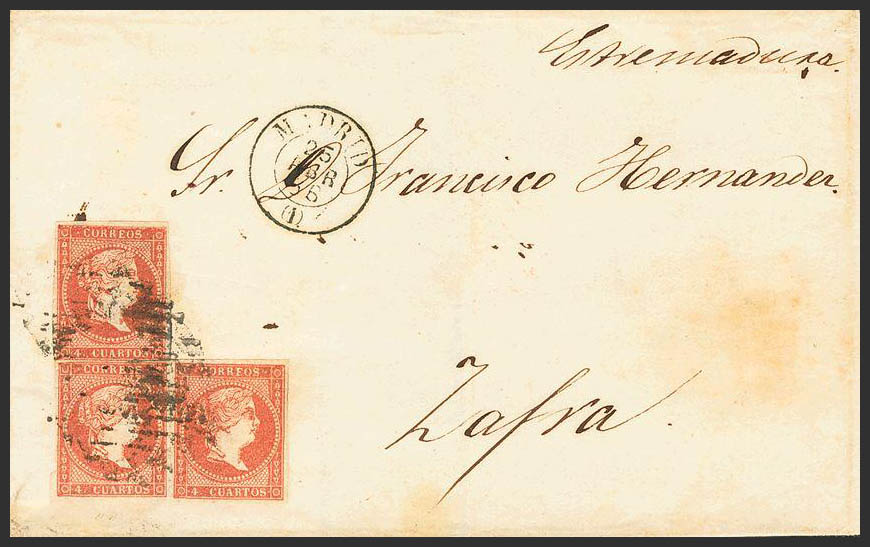 Estremadura.
MADRID
25
(1)
Sr. Francisco Hernandez.
Zafra.
CORREOS
4 CUARTOS
CORREOS
4 CUARTOS
CORREOS
4 CUARTOS